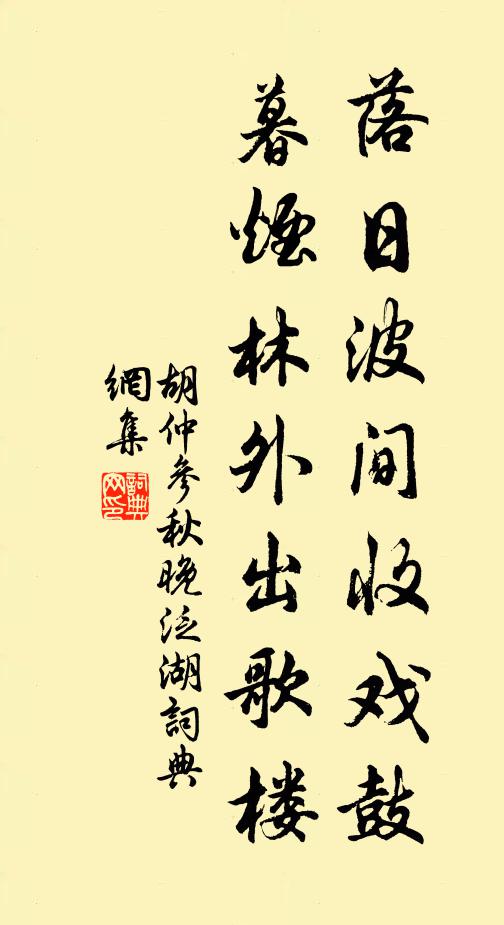 落日波间收戏鼓
暮煙林外出歌楼
胡仲參秋晚泛湖詞典
網集
詞典
网印